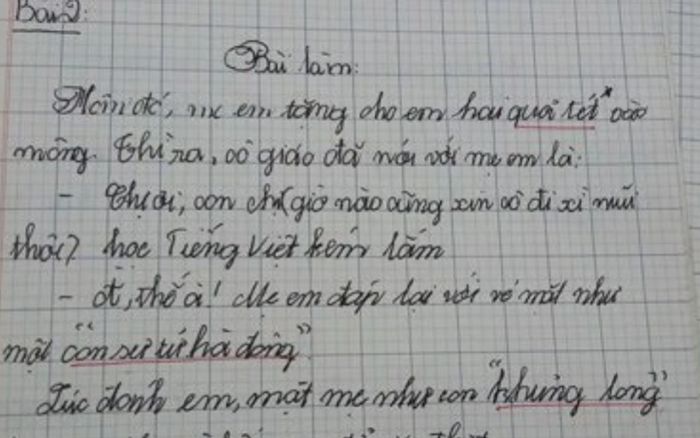 Bài 2:
Bài làm:
Hôm đó, mẹ em tặng cho em hai "quả tét" vào
mông. Thì ra, cô giáo đã nói với mẹ em là:
- Chị ơi, con chị giờ nào cũng xin cô đi xì mũi
thôi? học Tiếng Việt kém lắm
- Ồ, thế à! Mẹ em đáp lại với vẻ mặt như
một "con sư tử hà đông"
Lúc đánh em, mặt mẹ như con "khủng long"